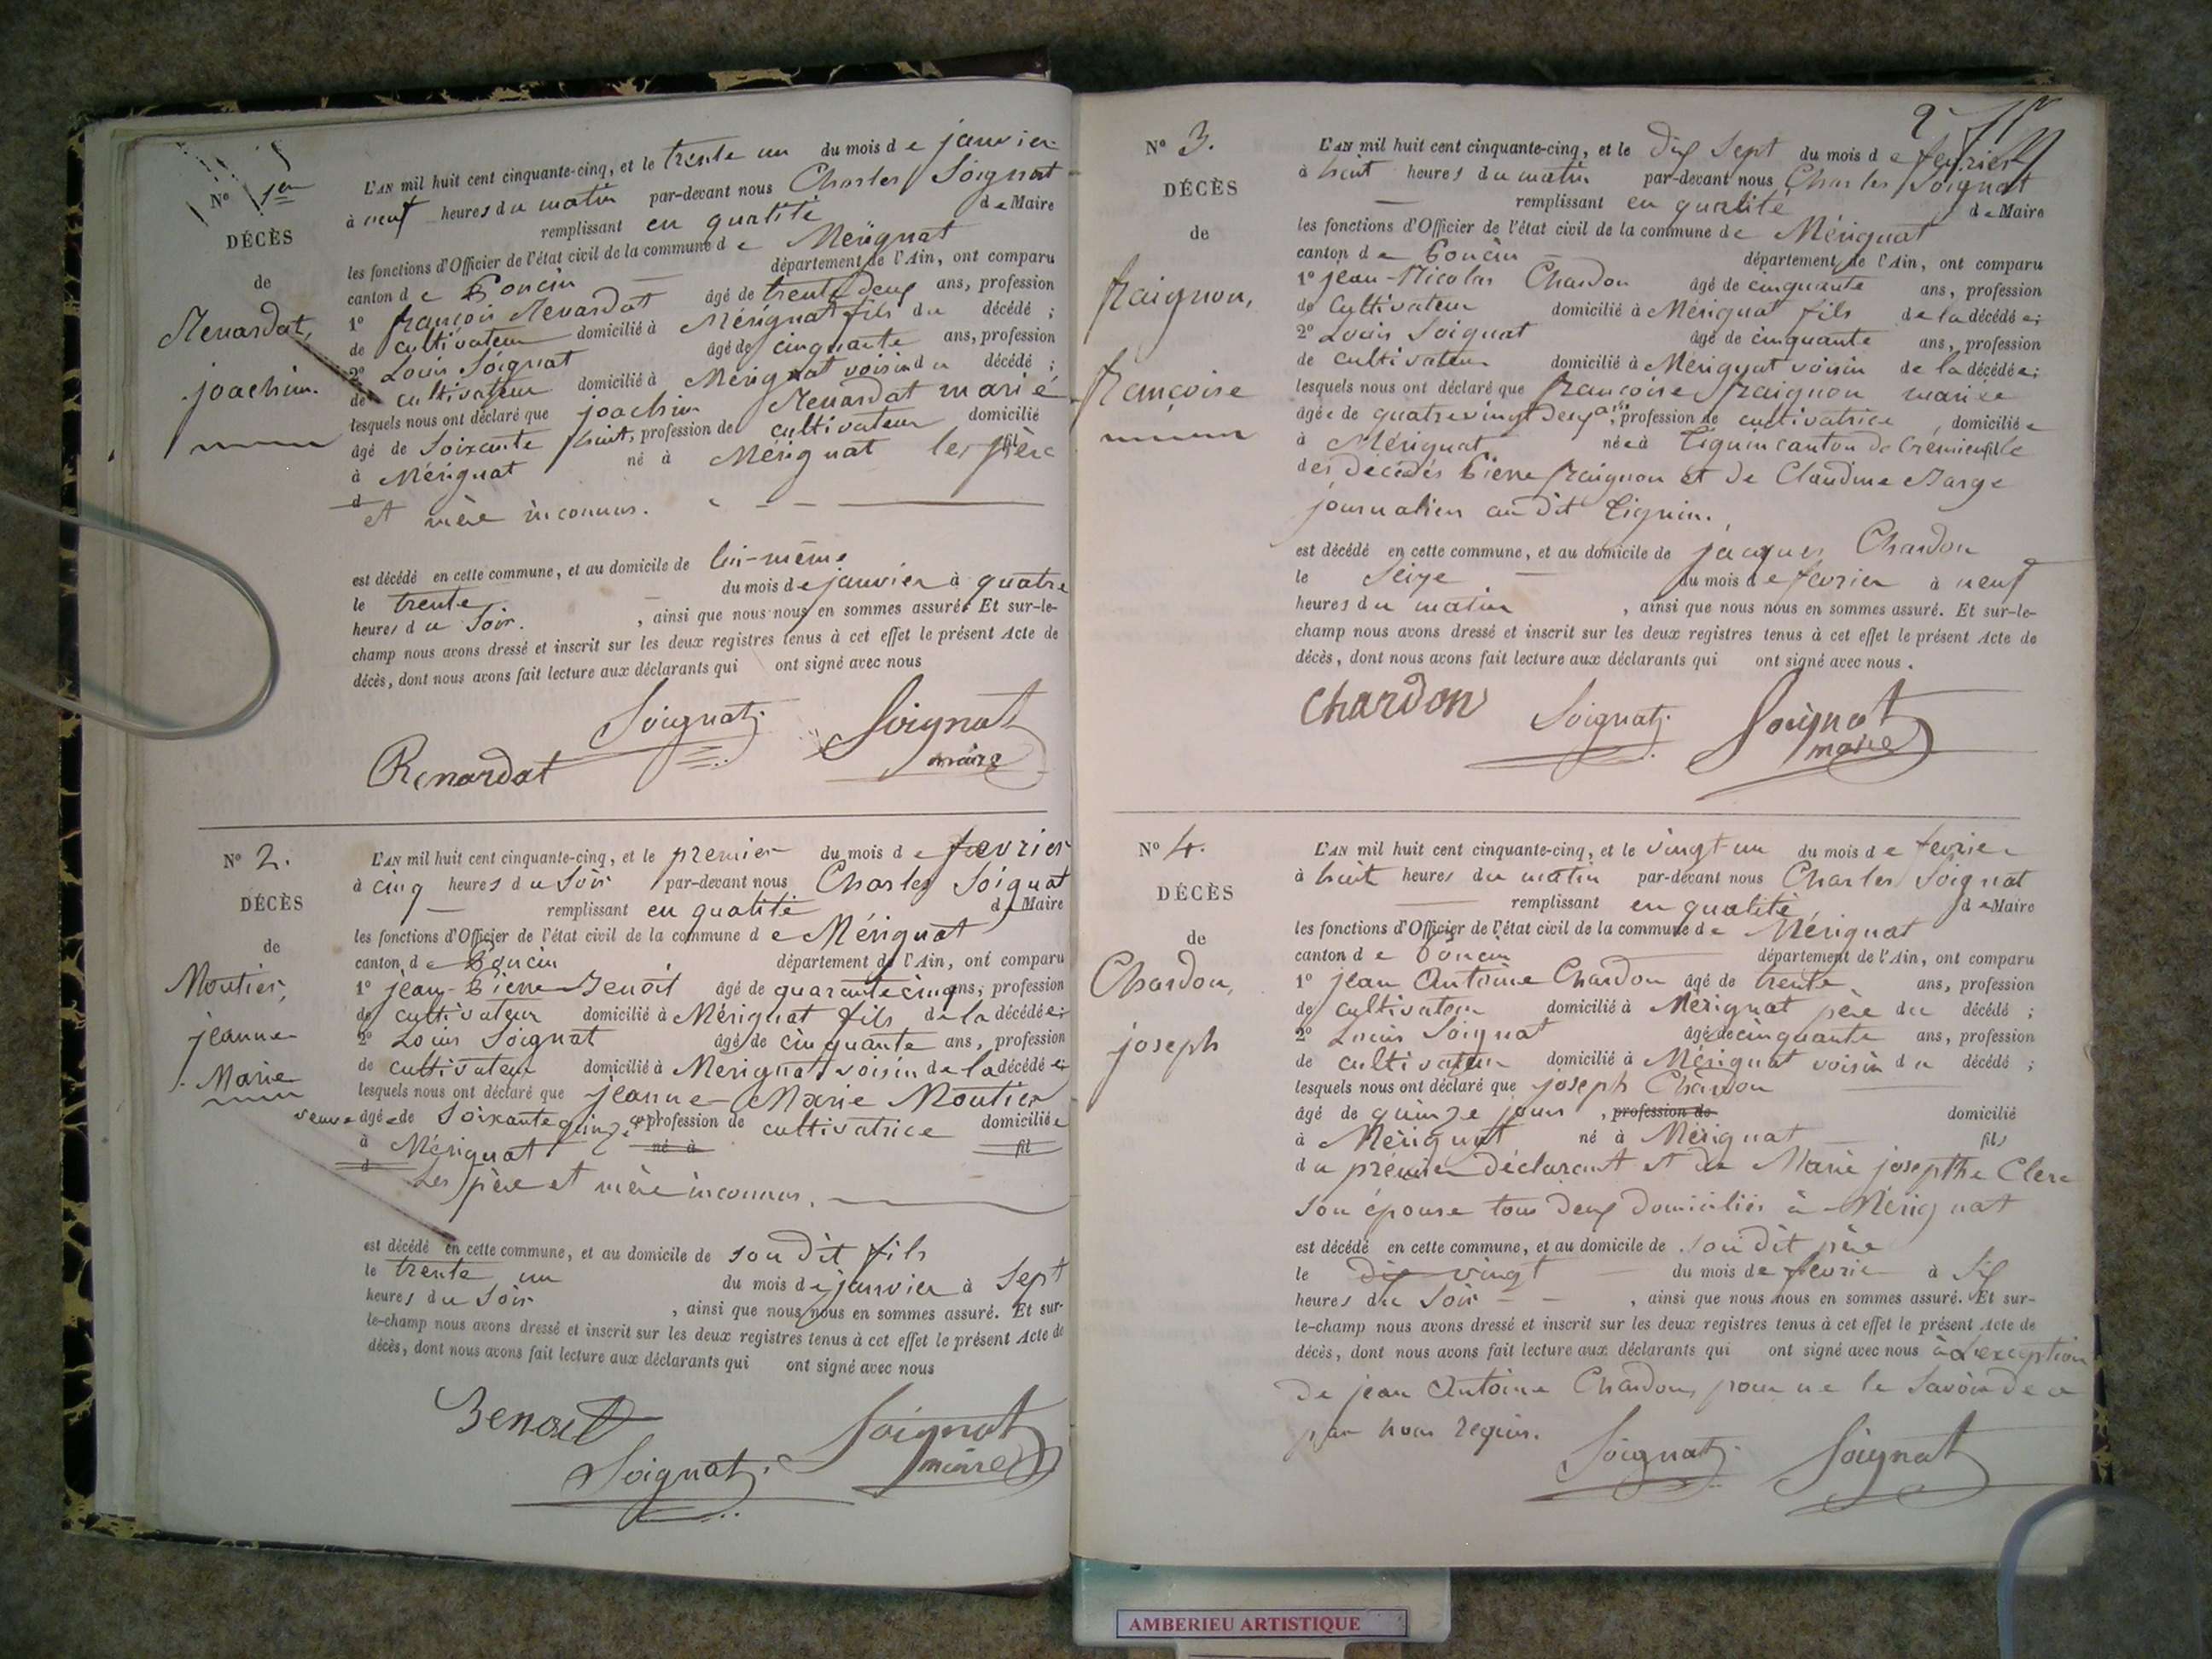 Nº 1er
DÉCÈS
de
Renardat,
joachim.
L'AN mil huit cent cinquante-cinq, et le trente un du mois de janvier
à neuf heures du matin par-devant nous Charles Soignat
remplissant en qualité de Maire
les fonctions d'Officier de l'état civil de la commune de Mérignat
canton de Poncin département de l'Ain, ont comparu
1º françois Renardat âgé de trente deux ans, profession
de cultivateur domicilié à Mérignat fils du décédé ;
2º Louis Soignat âgé de cinquante ans, profession
de cultivateur domicilié à Mérignat voisin du décédé ;
lesquels nous ont déclaré que joachim Renardat marié
âgé de Soixante huit, profession de cultivateur domicilié
à Mérignat né à Mérignat fil les père
d
et mère inconnus.
est décédé en cette commune, et au domicile de lui-même
le trente du mois de janvier à quatre
heures du Soir. , ainsi que nous nous en sommes assuré. Et sur-le-
champ nous avons dressé et inscrit sur les deux registres tenus à cet effet le présent Acte de
décès, dont nous avons fait lecture aux déclarants qui ont signé avec nous
Soignat Soignat
maire
Renardat
Nº 2.
DÉCÈS
de
Moutier,
jeanne-
Marie
L'AN mil huit cent cinquante-cinq, et le premier du mois de fevrier
à cinq heures du Soir par-devant nous Charles Soignat
remplissant en qualité de Maire
les fonctions d'Officier de l'état civil de la commune de Mérignat
canton de Poncin département de l'Ain, ont comparu
1º jean-Pierre Benoit âgé de quarante cinq ans, profession
de cultivateur domicilié à Mérignat fils de la décédée ;
2º Louis Soignat âgé de cinquante ans, profession
de cultivateur domicilié à Mérignat voisin de la décédée
lesquels nous ont déclaré que jeanne-Marie Moutier
veuve âgée de Soixante quinze ans profession de cultivatrice domiciliée
à Mérignat né à fil
d Les père et mère inconnus.
est décédé en cette commune, et au domicile de son dit fils
le trente un du mois de janvier à Sept
heures du Soir , ainsi que nous nous en sommes assuré. Et sur-
le-champ nous avons dressé et inscrit sur les deux registres tenus à cet effet le présent Acte de
décès, dont nous avons fait lecture aux déclarants qui ont signé avec nous
Benoit
Soignat Soignat
maire
2
Nº 3.
DÉCÈS
de
fraignon,
françoise
L'AN mil huit cent cinquante-cinq, et le Dix Sept du mois de fevrier
à huit heures du matin par-devant nous Charles Soignat
remplissant en qualité de Maire
les fonctions d'Officier de l'état civil de la commune de Mérignat
canton de Poncin département de l'Ain, ont comparu
1º jean-Nicolas Chardon âgé de cinquante ans, profession
de Cultivateur domicilié à Mérignat fils de la décédée ;
2º Louis Soignat âgé de cinquante ans, profession
de cultivateur domicilié à Mérignat voisin de la décédée ;
lesquels nous ont déclaré que françoise fraignon mariée
âgée de quatre vingt deux ans, profession de cultivatrice, domiciliée
à Mérignat née à Tignin canton de Crémieu fille
des décédés Pierre fraignon et de Claudine Barge
journaliers au dit Tignin.
est décédé en cette commune, et au domicile de jacques Chardon
le Seize du mois de fevrier à neuf
heures du matin , ainsi que nous nous en sommes assuré. Et sur-le-
champ nous avons dressé et inscrit sur les deux registres tenus à cet effet le présent Acte de
décès, dont nous avons fait lecture aux déclarants qui ont signé avec nous.
Chardon Soignat Soignat
maire
Nº 4.
DÉCÈS
de
Chardon,
joseph
L'AN mil huit cent cinquante-cinq, et le vingt un du mois de fevrier
à huit heures du matin par-devant nous Charles Soignat
remplissant en qualité de Maire
les fonctions d'Officier de l'état civil de la commune de Mérignat
canton de Poncin département de l'Ain, ont comparu
1º jean Antoine Chardon âgé de trente ans, profession
de cultivateur domicilié à Mérignat père du décédé ;
2º Louis Soignat âgé de cinquante ans, profession
de cultivateur domicilié à Mérignat voisin du décédé ;
lesquels nous ont déclaré que joseph Chardon
âgé de quinze jours , profession de domicilié
à Mérignat né à Mérignat fils
du premier déclarant et de Marie josepthe Clerc
Son épouse tous deux domiciliés à Mérignat
est décédé en cette commune, et au domicile de son dit père
le dix vingt du mois de fevrier à Six
heures du Soir , ainsi que nous nous en sommes assuré. Et sur-
le-champ nous avons dressé et inscrit sur les deux registres tenus à cet effet le présent Acte de
décès, dont nous avons fait lecture aux déclarants qui ont signé avec nous à L'exception
De jean Antoine Chardon, pour ne le Savoir de ce
par nous requis.
Soignat Soignat
AMBERIEU ARTISTIQUE